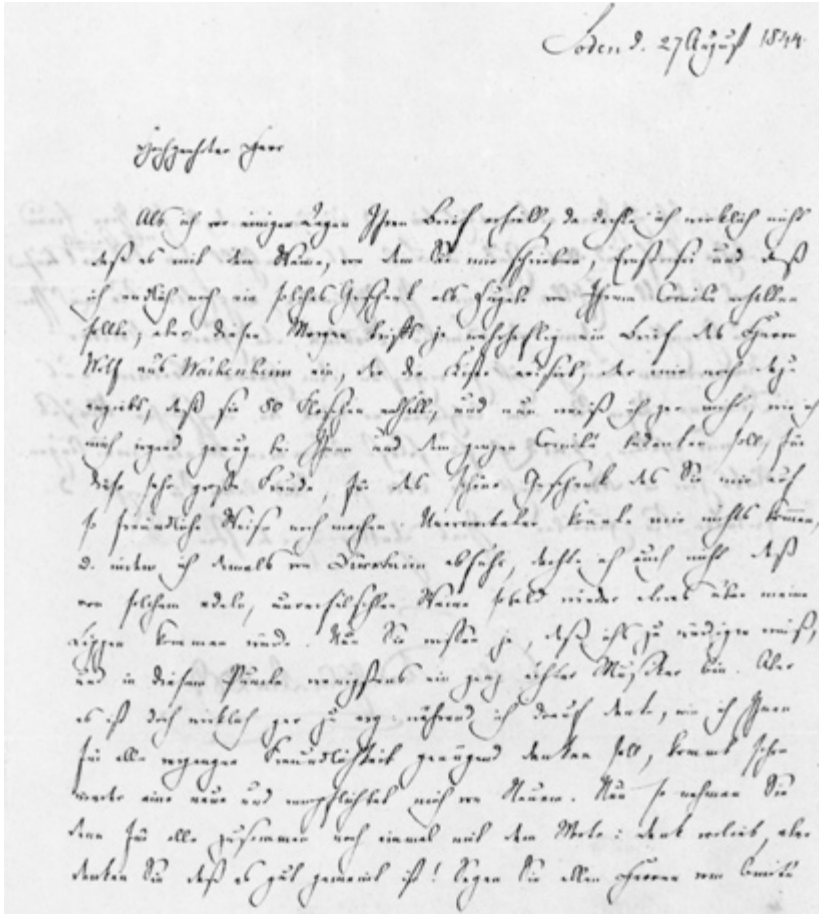 Soden d. 27 August 1844.
Hochgeehrter Herr
Als ich vor einigen Tagen Ihren Brief erhielt, da dachte ich wirklich nicht
daß es mit dem Weine, von dem Sie mir schrieben, Ernst sei und daß
ich endlich noch ein solches Geschenk als Zugabe von Ihrem Comité erhalten
sollte, aber diesen Morgen trifft ja wahrhaftig ein Brief des Herrn
Wolf aus Wachenheim ein, der die Kiste, der mir noch dazu
angiebt, daß sie 50 Flaschen enthält, und nun weiß ich gar nicht, wie ich
mich irgend genug bei Ihnen und dem ganzen Comité bedanken soll, für
diese sehr große Freude, für das schöne Geschenk das Sie mir auf
so freundliche Weise noch machen. Unerwarteter konnte mir nichts kommen,
d. indem ich damals von Dürkheim abfuhr, dachte ich auch nicht daß
von solchem edeln, unverfälschten Weine sobald wieder etwas über meine
Lippen kommen würde. Nun Sie wissen ja, daß ichs zu würdigen weiß,
und in diesem Puncte wenigstens ein ganz ächter Musiker bin. Aber
es ist doch wirklich gar zu arg: während ich darauf denke, wie ich Ihnen
für alle vergangene Freundlichkeit genügend danken soll, kommt schon
wieder eine neue und verpflichtet mich von Neuem. Nun so nehmen Sie
denn für alle zusammen noch einmal mit dem Worte: Dank vorlieb, aber
denken Sie daß es gut gemeint ist! Sagen Sie allen Herren vom Comité